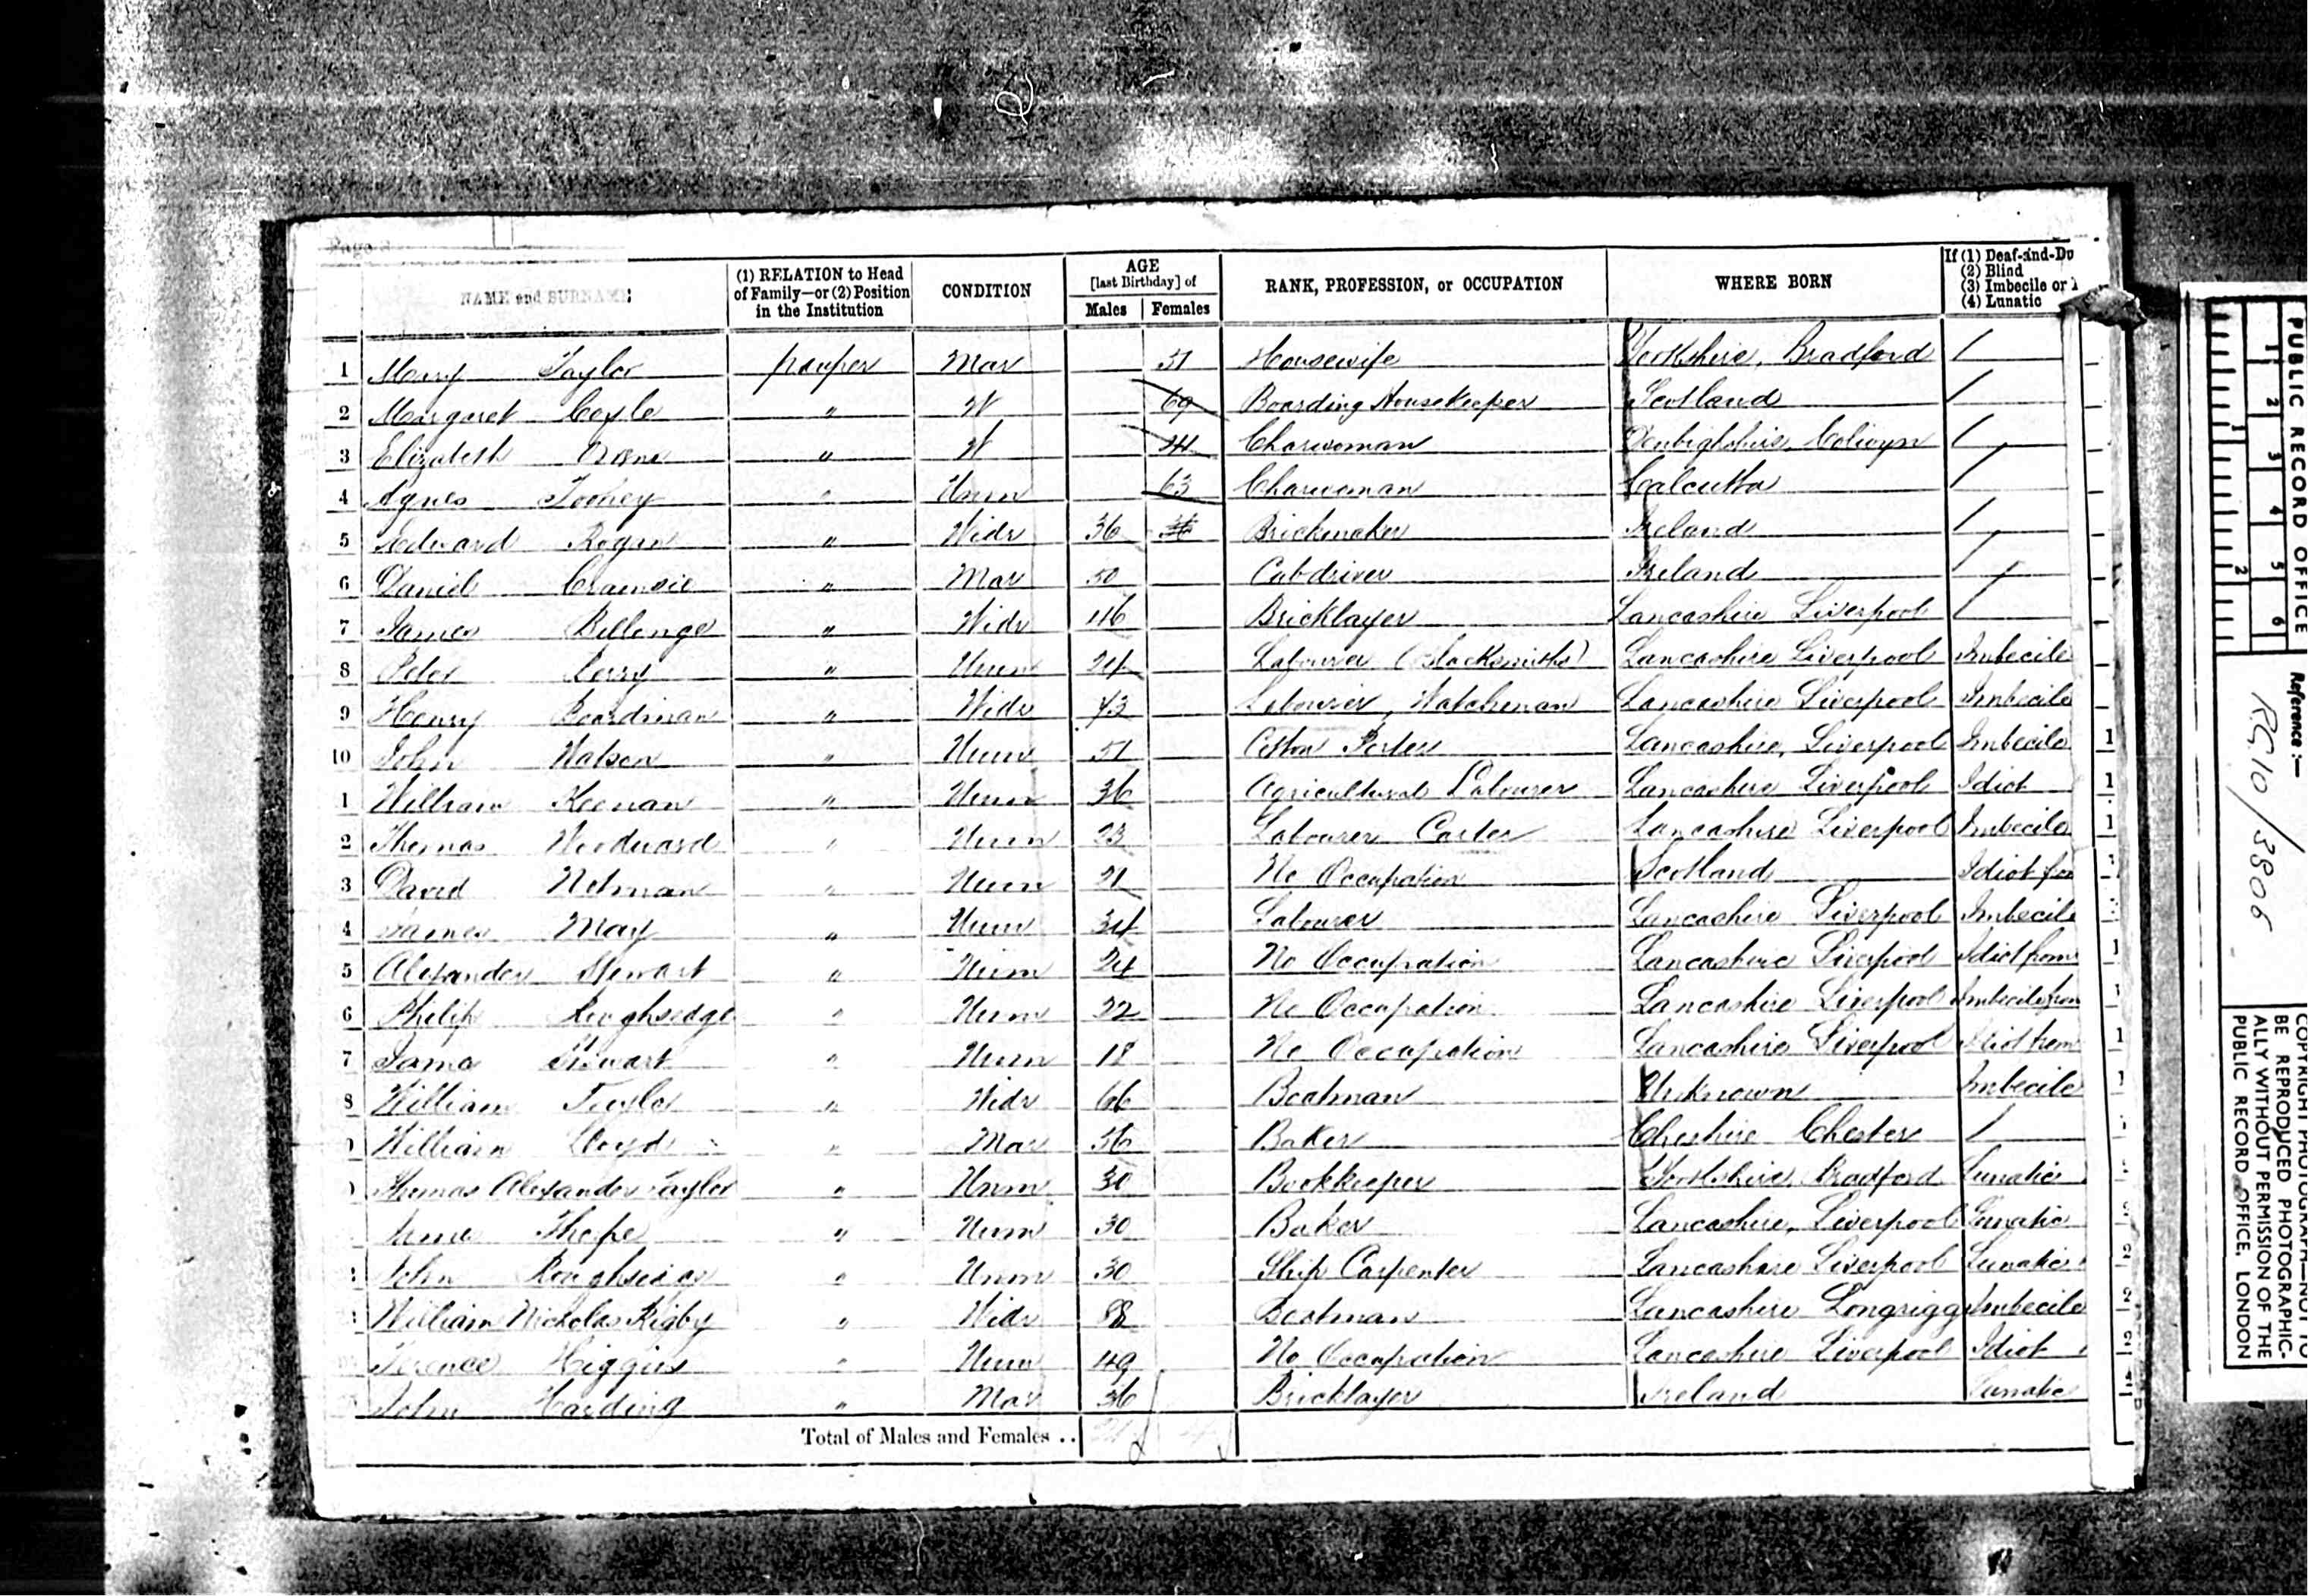 Page
NAME and SURNAME
(1) RELATION to Head of Family—or (2) Position in the Institution
CONDITION
AGE [last Birthday] of
Males Females
RANK, PROFESSION, or OCCUPATION
WHERE BORN
If (1) Deaf-and-Du
(2) Blind
(3) Imbecile or
(4) Lunatic
1 Mary Taylor pauper Mar 51 Housewife Yorkshire, Bradford /
2 Margaret Coyle " W 69 Boarding Housekeeper Scotland /
3 Elizabeth " W Charwoman Denbighshire, Colwyn /
4 Agnes Toohey " Unm 63 Charwoman Calcutta /
5 Edward Rogan " Widr 36 Brickmaker Ireland /
6 David " Mar 50 Cabdriver Ireland /
7 James Billenge " Widr 46 Bricklayer Lancashire Liverpool /
8 Peter Berry " Unm 24 Labourer (Blacksmiths) Lancashire Liverpool Imbecile
9 Henry Boardman " Widr Labourer, Watchman Lancashire Liverpool Imbecile
10 John Watson " Unm 51 Cotton Porter Lancashire, Liverpool Imbecile 1
1 William Keenan " Unm 36 Agricultural Labourer Lancashire Liverpool Idiot 1
2 Thomas Woodward " Unm 23 Labourer Carter Lancashire Liverpool Imbecile 1
3 David Notman " Unm 21 No Occupation Scotland Idiot
4 James May " Unm 34 Labourer Lancashire Liverpool Imbecile
5 Alexander Stewart " Unm 24 No Occupation Lancashire Liverpool Idiot from 1
6 Philip Roughsedge " Unm 22 No Occupation Lancashire Liverpool Imbecile from 1
7 James Stewart " Unm 18 No Occupation Lancashire Liverpool Idiot from 1
8 William Taylor " Widr 66 Boatman Unknown Imbecile 1
William Lloyd " Mar 56 Baker Cheshire Chester /
Thomas Alexander Taylor " Unm 30 Bookkeeper Yorkshire, Bradford Lunatic
Thorpe " Unm 30 Baker Lancashire, Liverpool Lunatic
John Roughsedge " Unm 30 Ship Carpenter Lancashire Liverpool Lunatic
William Nicholas Rigby " Widr 88 Boatman Lancashire Longrigg Imbecile
Terence Higgins " Unm 49 No Occupation Lancashire Liverpool Idiot
John Harding " Mar 36 Bricklayer Ireland Lunatic
Total of Males and Females ..
PUBLIC RECORD OFFICE
1 2 3 4 5 6
1 2
Reference :—
R.G. 10/3806
COPYRIGHT PHOTOGRAPH—NOT TO
BE REPRODUCED PHOTOGRAPHIC-
ALLY WITHOUT PERMISSION OF THE
PUBLIC RECORD OFFICE, LONDON